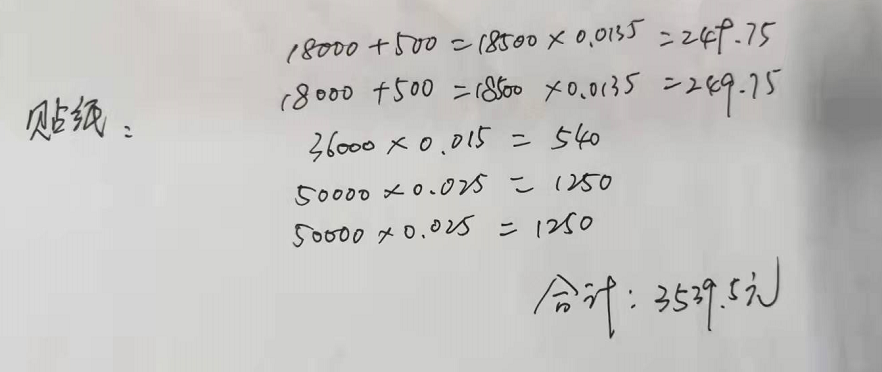 18000+500=18500×0.0135=249.75
18000+500=18500×0.0135=249.75
贴纸：
36000×0.015=540
50000×0.025=1250
50000×0.025=1250
合计：3539.5元